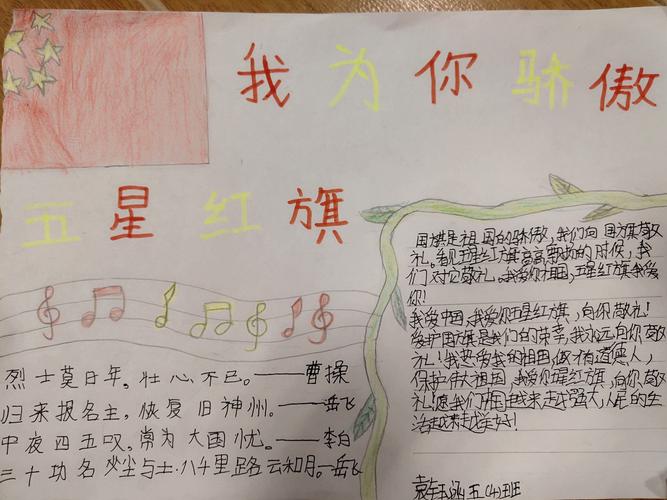 我为你骄傲
五星红旗
国旗是祖国的骄傲,我们向国旗敬
礼。看见五星红旗高高飘扬的时候,我
们对它敬礼。我爱你祖国,五星红旗我爱
你!
我爱中国,我爱你五星红旗,向你敬礼!
爱护国旗是我们的荣幸,我永远向你敬
礼!我热爱我的祖国,做有道德人,
保护伟大祖国,我爱你五星红旗,向你敬
礼!愿我们祖国越来越强大,人民的生
活越来越美好!
烈士莫日年,壮心不已。——曹操
归来报名主,恢复旧神州。——岳飞
中夜四五叹,常为大国忧。——李白
三十功名尘与土.八千里路云和月.—岳飞
袁钰涵五(4)班